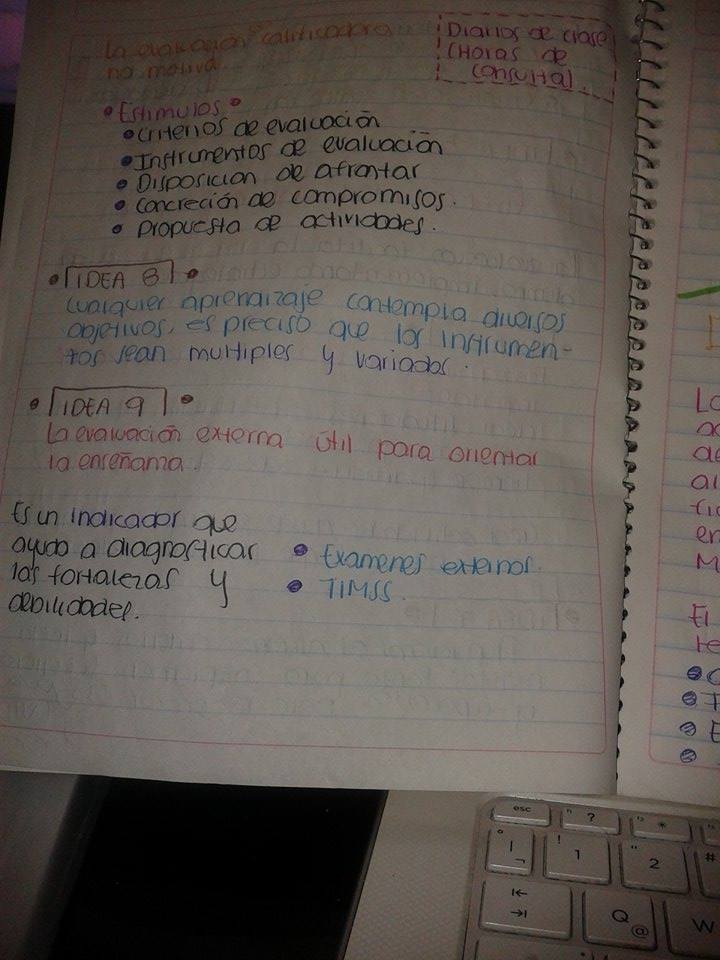 La evaluación calificadora
no motiva.
Diarios de clase
(Horas de
consulta).
• Estimulos •
• Criterios de evaluación
• Instrumentos de evaluación
• Disposicion de afrontar
• Concreción de compromisos.
• Propuesta de actividades.
• IDEA 8 •
Cualquier aprendizaje contempla diversos
objetivos, es preciso que los instrumen-
tos sean multiples y variados.
• IDEA 9 •
La evaluación externa útil para orientar
la enseñanza.
Es un indicador que
ayuda a diagnosticar
las fortalezas y
debilidades.
• Examenes externos.
• TIMSS.
esc
?
*
!
1
"
2
#
Q
@
W